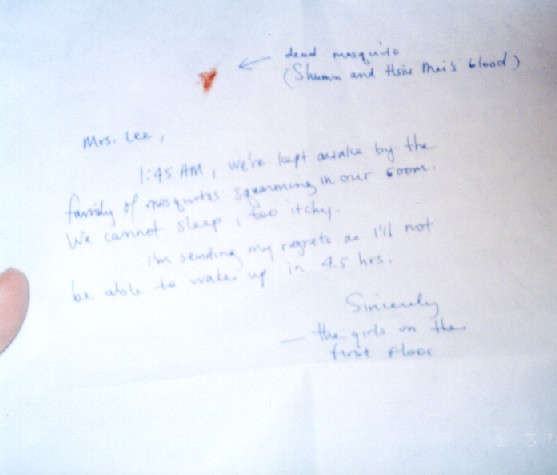 dead mosquito
(Shumin and Hsiu Mei's blood)
Mrs. Lee,
1:45 AM, we're kept awake by the
family of mosquitos squirming in our room.
We cannot sleep, too itchy.
I'm sending my regrets as I'll not
be able to wake up in 4.5 hrs.
Sincerely
— the girls on the
first floor